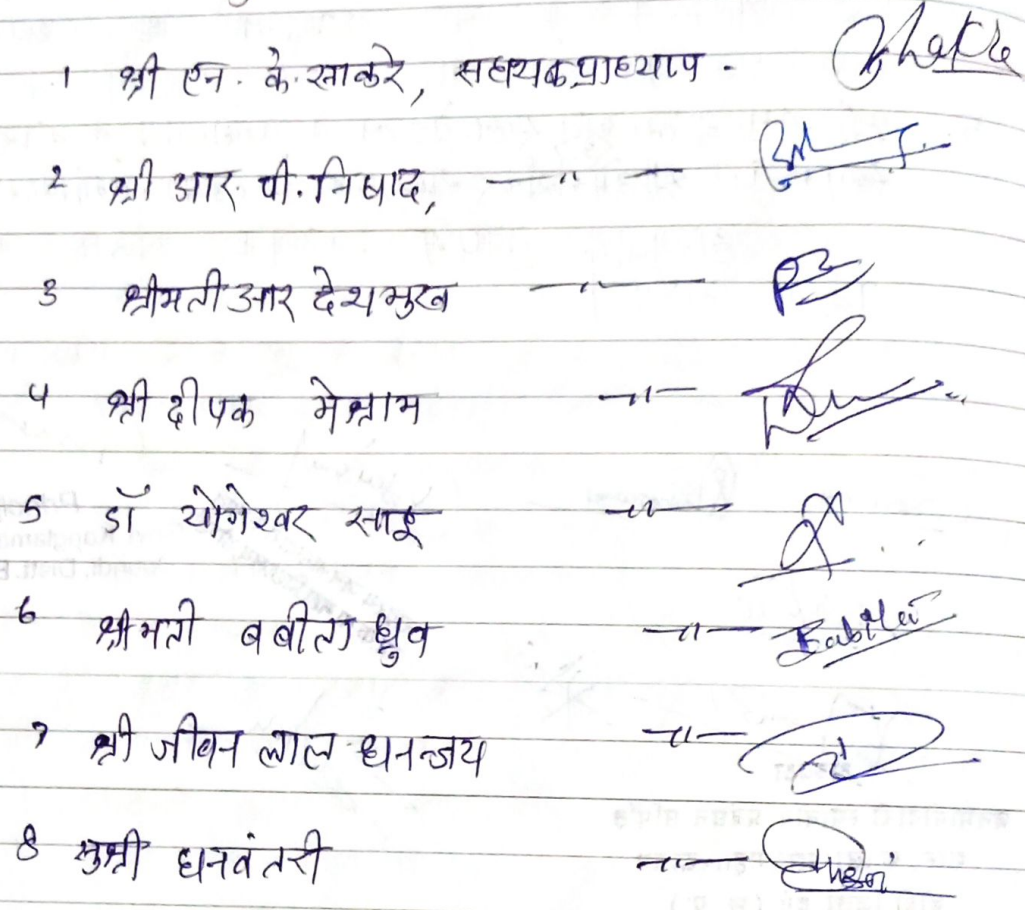 1 श्री एन. के. साकरे, सहायक प्राध्याप -
2 श्री आर. पी. निषाद, —〃—
3 श्रीमती आर देशमुख —〃—
4 श्री दीपक मेश्राम —〃—
5 डॉ योगेश्वर साहू —〃—
6 श्रीमती बबीता ध्रुव —〃— Babita
7 श्री जीवन लाल धनन्जय —〃—
8 सुश्री धनवंतरी —〃—